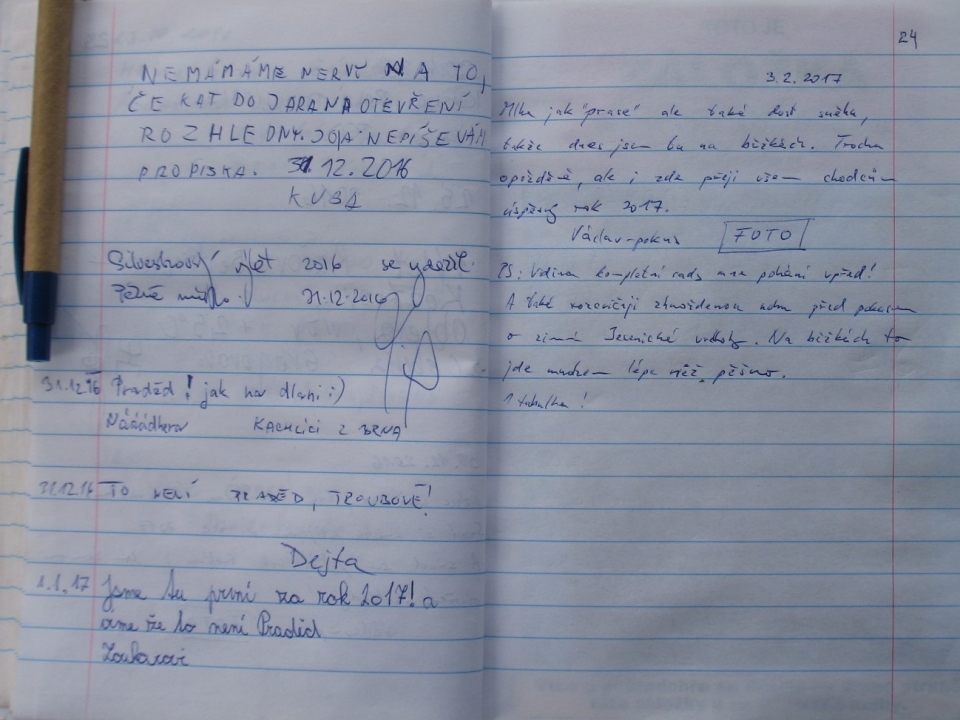 NEMÁMÁME NERVY NA TO,
ČEKAT DO JARA NA OTEVŘENÍ
ROZHLEDNY. JOJA NEPÍŠE VÁM
PROPISKA. 31.12.2016
KUBA
Silvestrovský výlet 2016 se vydařil.
Pěkné místo. 31.12.2016
31.12.16 Praděd! jak na dlani :)
Náááádhera KACHLÍCI Z BRNA
31.12.16 TO NENÍ PRADĚD, TROUBOVÉ!
Dejta
1.1.17 Jsme tu první za rok 2017! a
víme že to není Praděd
24
3.2.2017
Mlha jak "prase" ale také dost sněhu,
takže dnes jsem tu na běžkách. Trochu
opožděně, ale i zde přeji všem chodcům
úspěšný rok 2017.
Václav-pokus FOTO
PS: Vidina kompletní sady mne pohání vpřed!
A také rozcvičuji zhuoždenou nohu před pokusem
o zimní Jesenické vrcholy. Na běžkách to
jde mnohem lépe něž pěšmo.
1 tabulka!